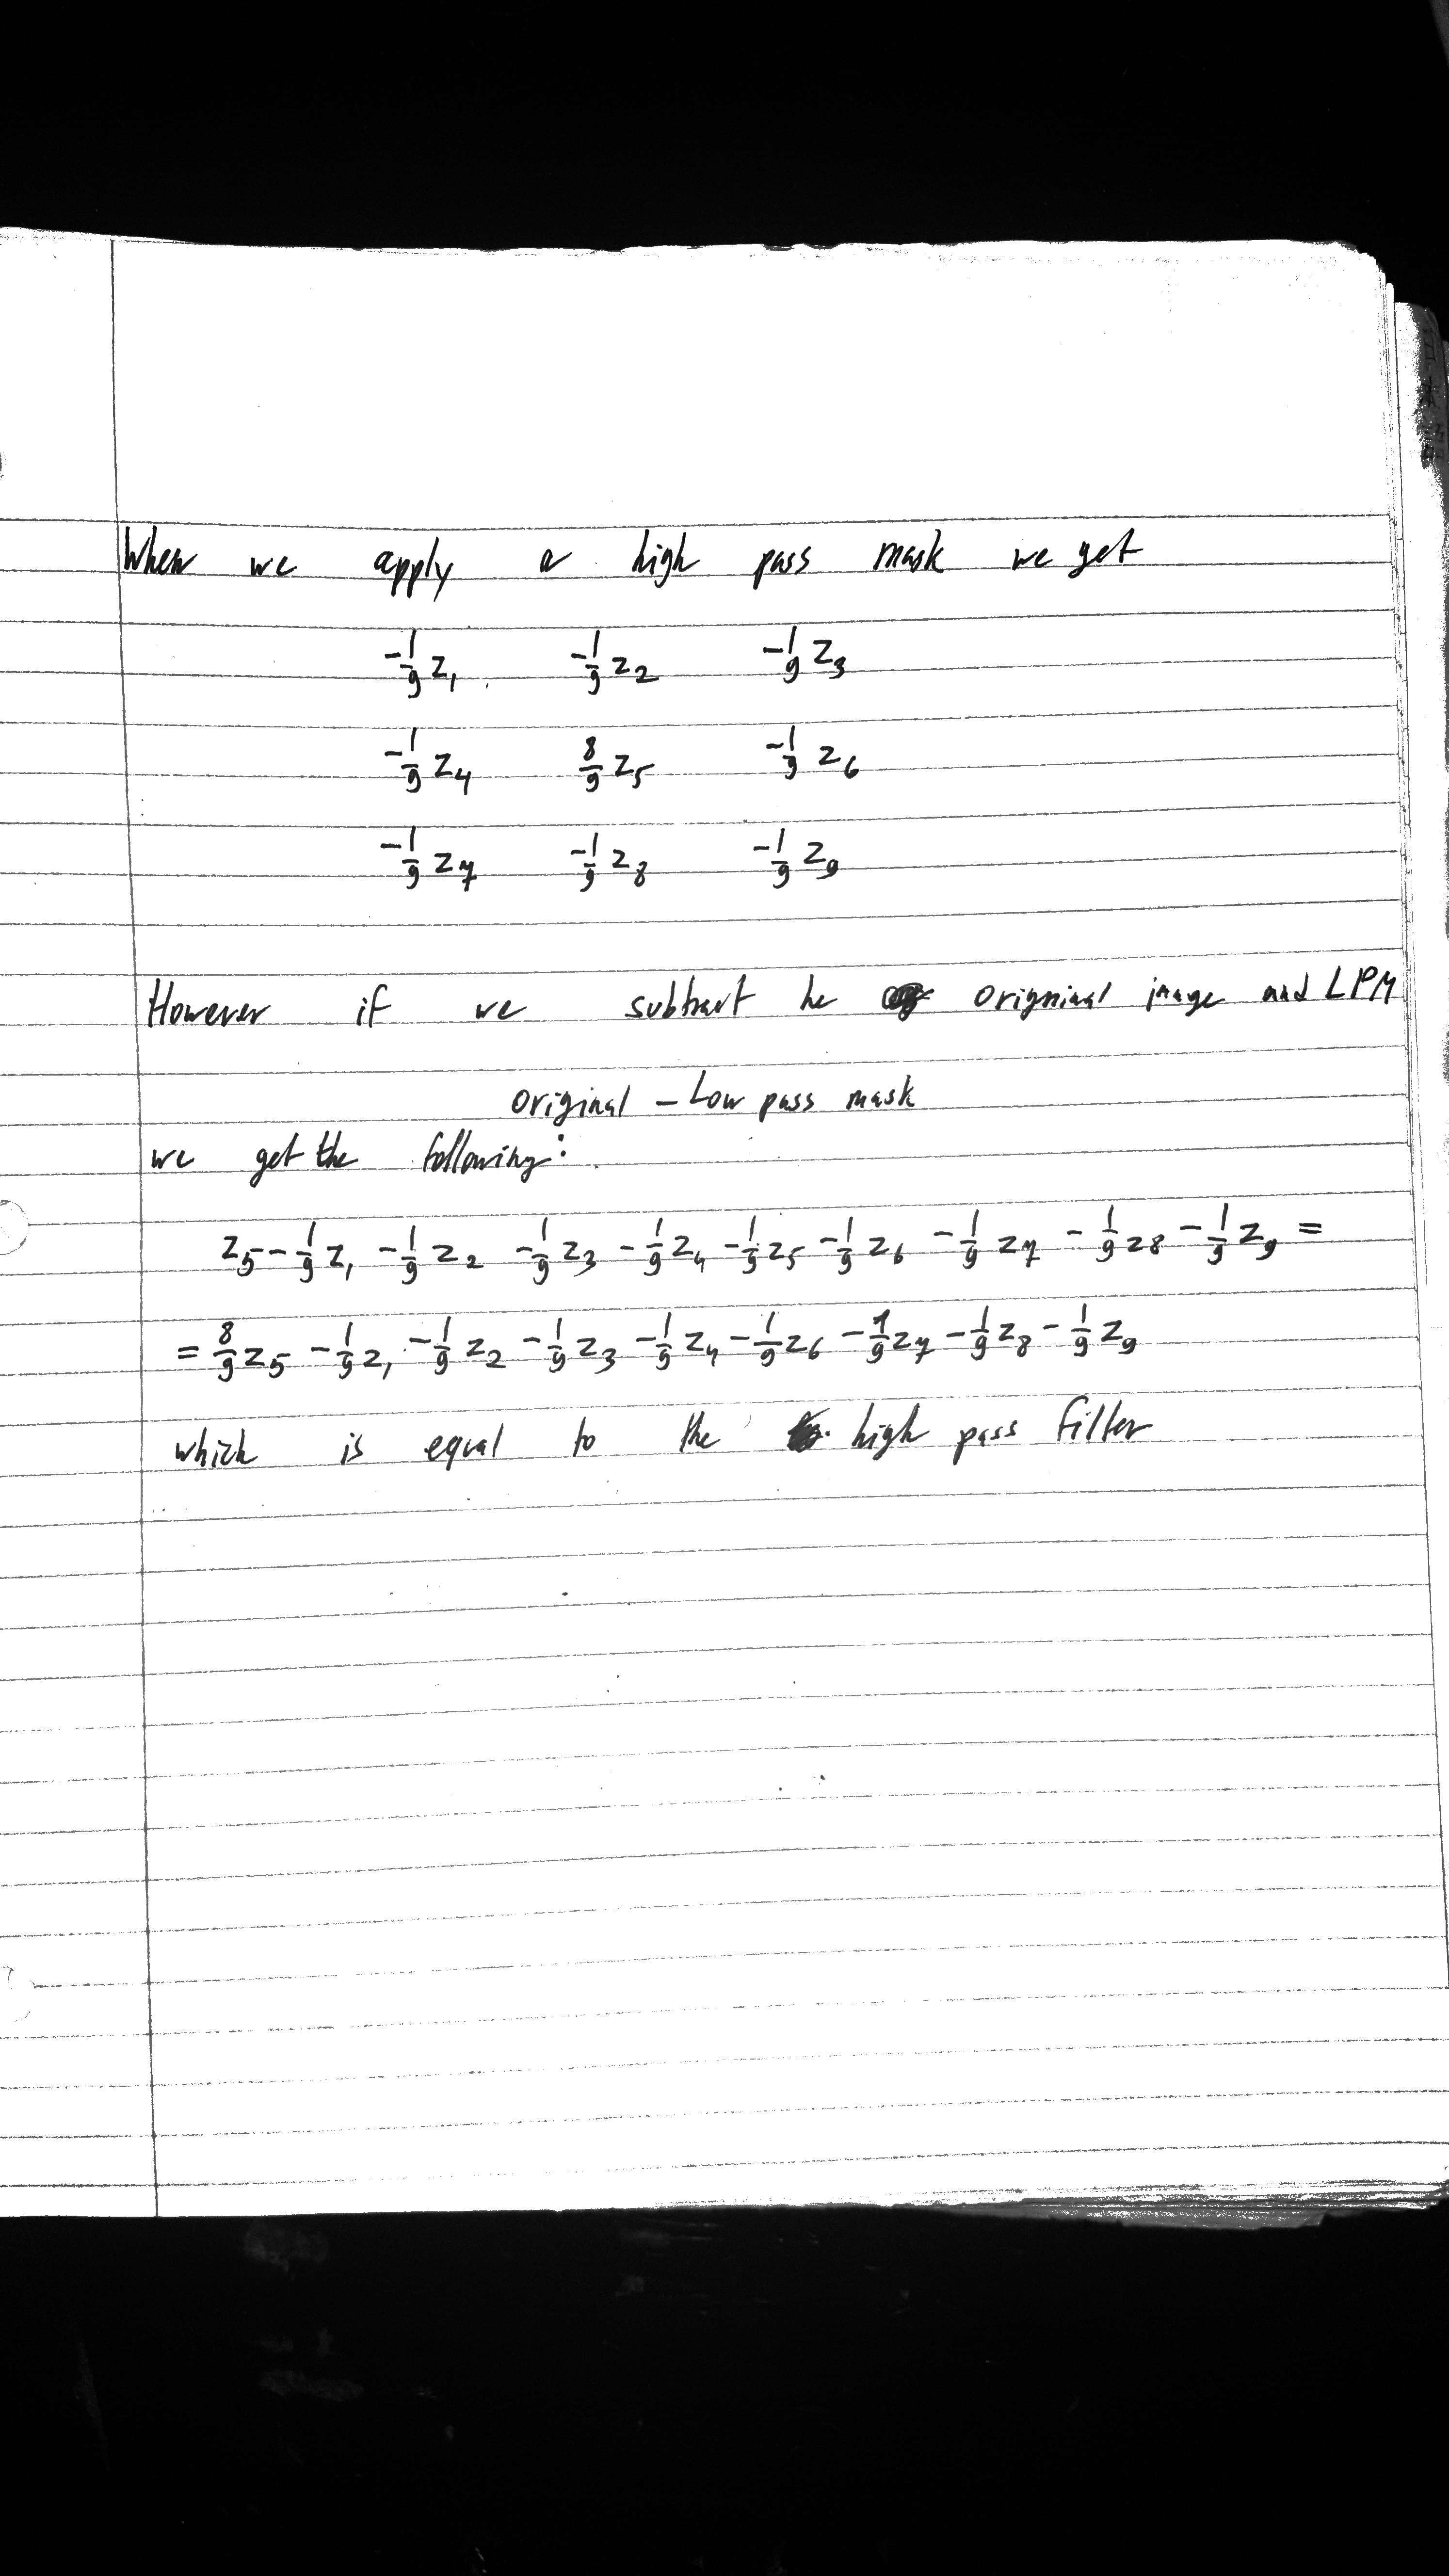 When we apply a high pass mask we get
-1/9 z1 -1/9 z2 -1/9 z3
-1/9 z4 8/9 z5 -1/9 z6
-1/9 z7 -1/9 z8 -1/9 z9
However if we subtract he origninal image and LPM
original - Low pass mask
we get the following:
z5 - 1/9 z1 - 1/9 z2 - 1/9 z3 - 1/9 z4 - 1/9 z5 - 1/9 z6 - 1/9 z7 - 1/9 z8 - 1/9 z9 =
= 8/9 z5 - 1/9 z1 - 1/9 z2 - 1/9 z3 - 1/9 z4 - 1/9 z6 - 1/9 z7 - 1/9 z8 - 1/9 z9
which is equal to the high pass filter